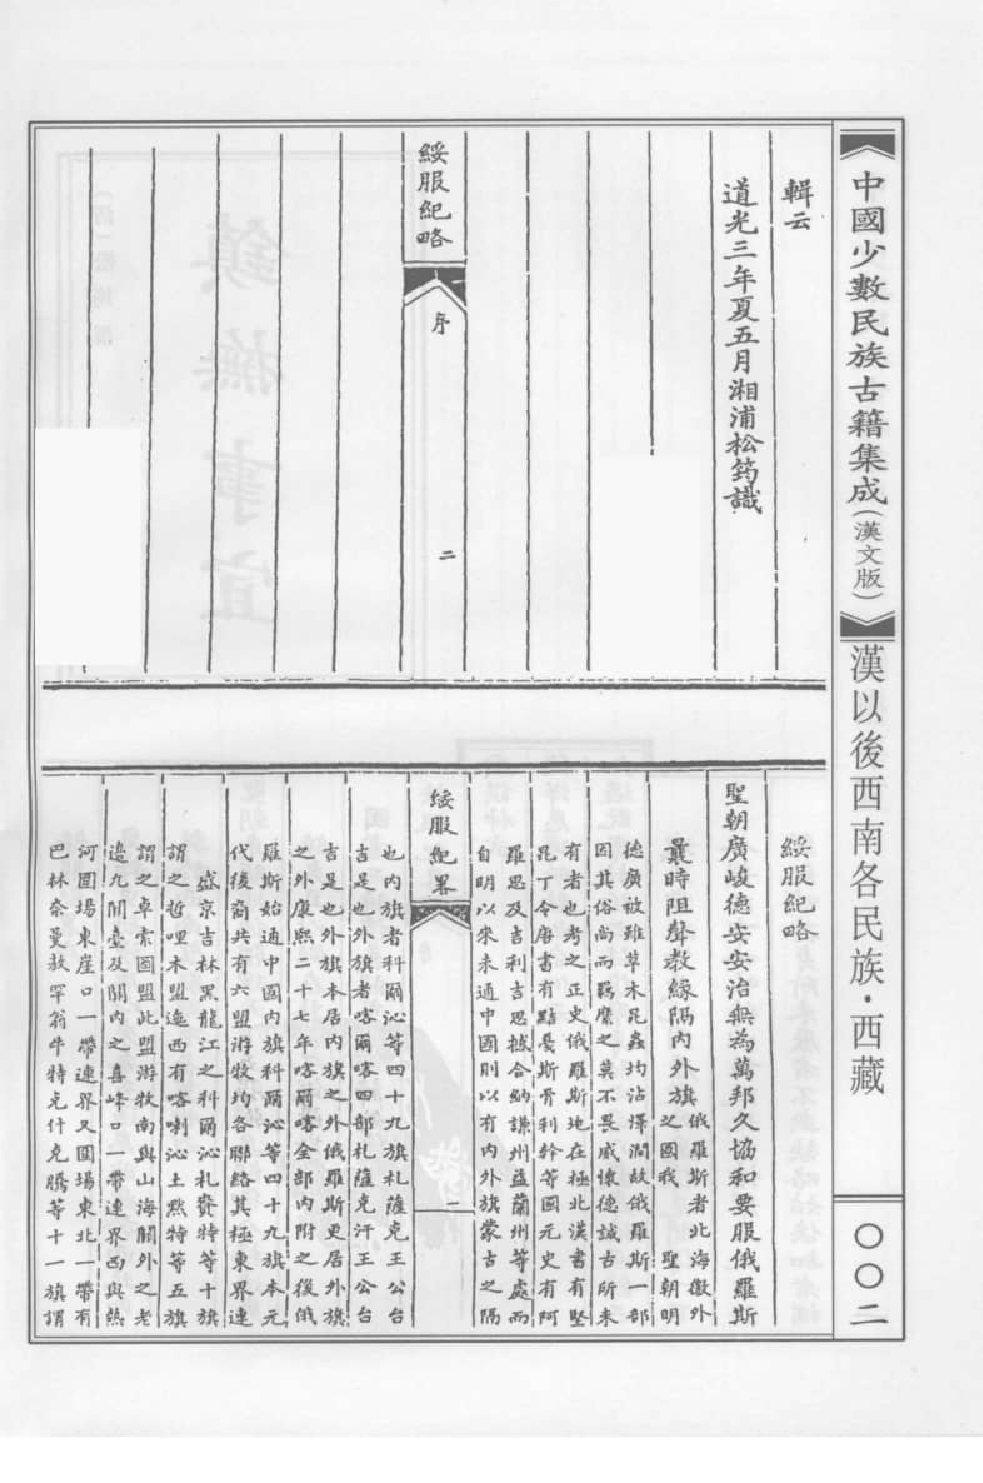 《中國少數民族古籍集成(漢文版)》漢以後西南各民族·西藏
〇〇二
輯云
道光三年夏五月湘浦松筠識
綏服紀略
序
二
綏服紀略
聖朝廣峻德安安治無為萬邦久協和要服俄羅斯
曩時阻聲教緣隔內外旗
俄羅斯者北海徼外
之國我 聖朝明
德廣被雖草木昆蟲均沾渥潤故俄羅斯一部
因其俗尚而羈縻之莫不畏威懷德誠古所未
有者也考之正史俄羅斯地在極北漢書有堅
昆丁令唐書有黠戛斯骨利幹等國元史有阿
羅思及吉利吉思撼合納謙州益蘭州等處而
自明以來未通中國則以有內外旗蒙古之隔
綏服紀畧
一
也內旗者科爾沁等四十九旗札薩克王公台
吉是也外旗者喀爾喀四部札薩克汗王公台
吉是也外旗本居內旗之外俄羅斯更居外旗
之外康熙二十七年喀爾喀全部內附之後俄
羅斯始通中國內旗科爾沁等四十九旗本元
代後裔共有六盟游牧均各聯絡其極東界連
盛京吉林黑龍江之科爾沁札賚特等十旗
謂之哲哩木盟迤西有喀喇沁土黙特等五旗
謂之卓索圖盟此盟游牧南與山海關外之老
邊九關臺及關內之喜峰口一帶連界西與熱
河圍場東崖口一帶連界又圍場東北一帶有
巴林奈曼敖罕翁牛特克什克騰等十一旗謂